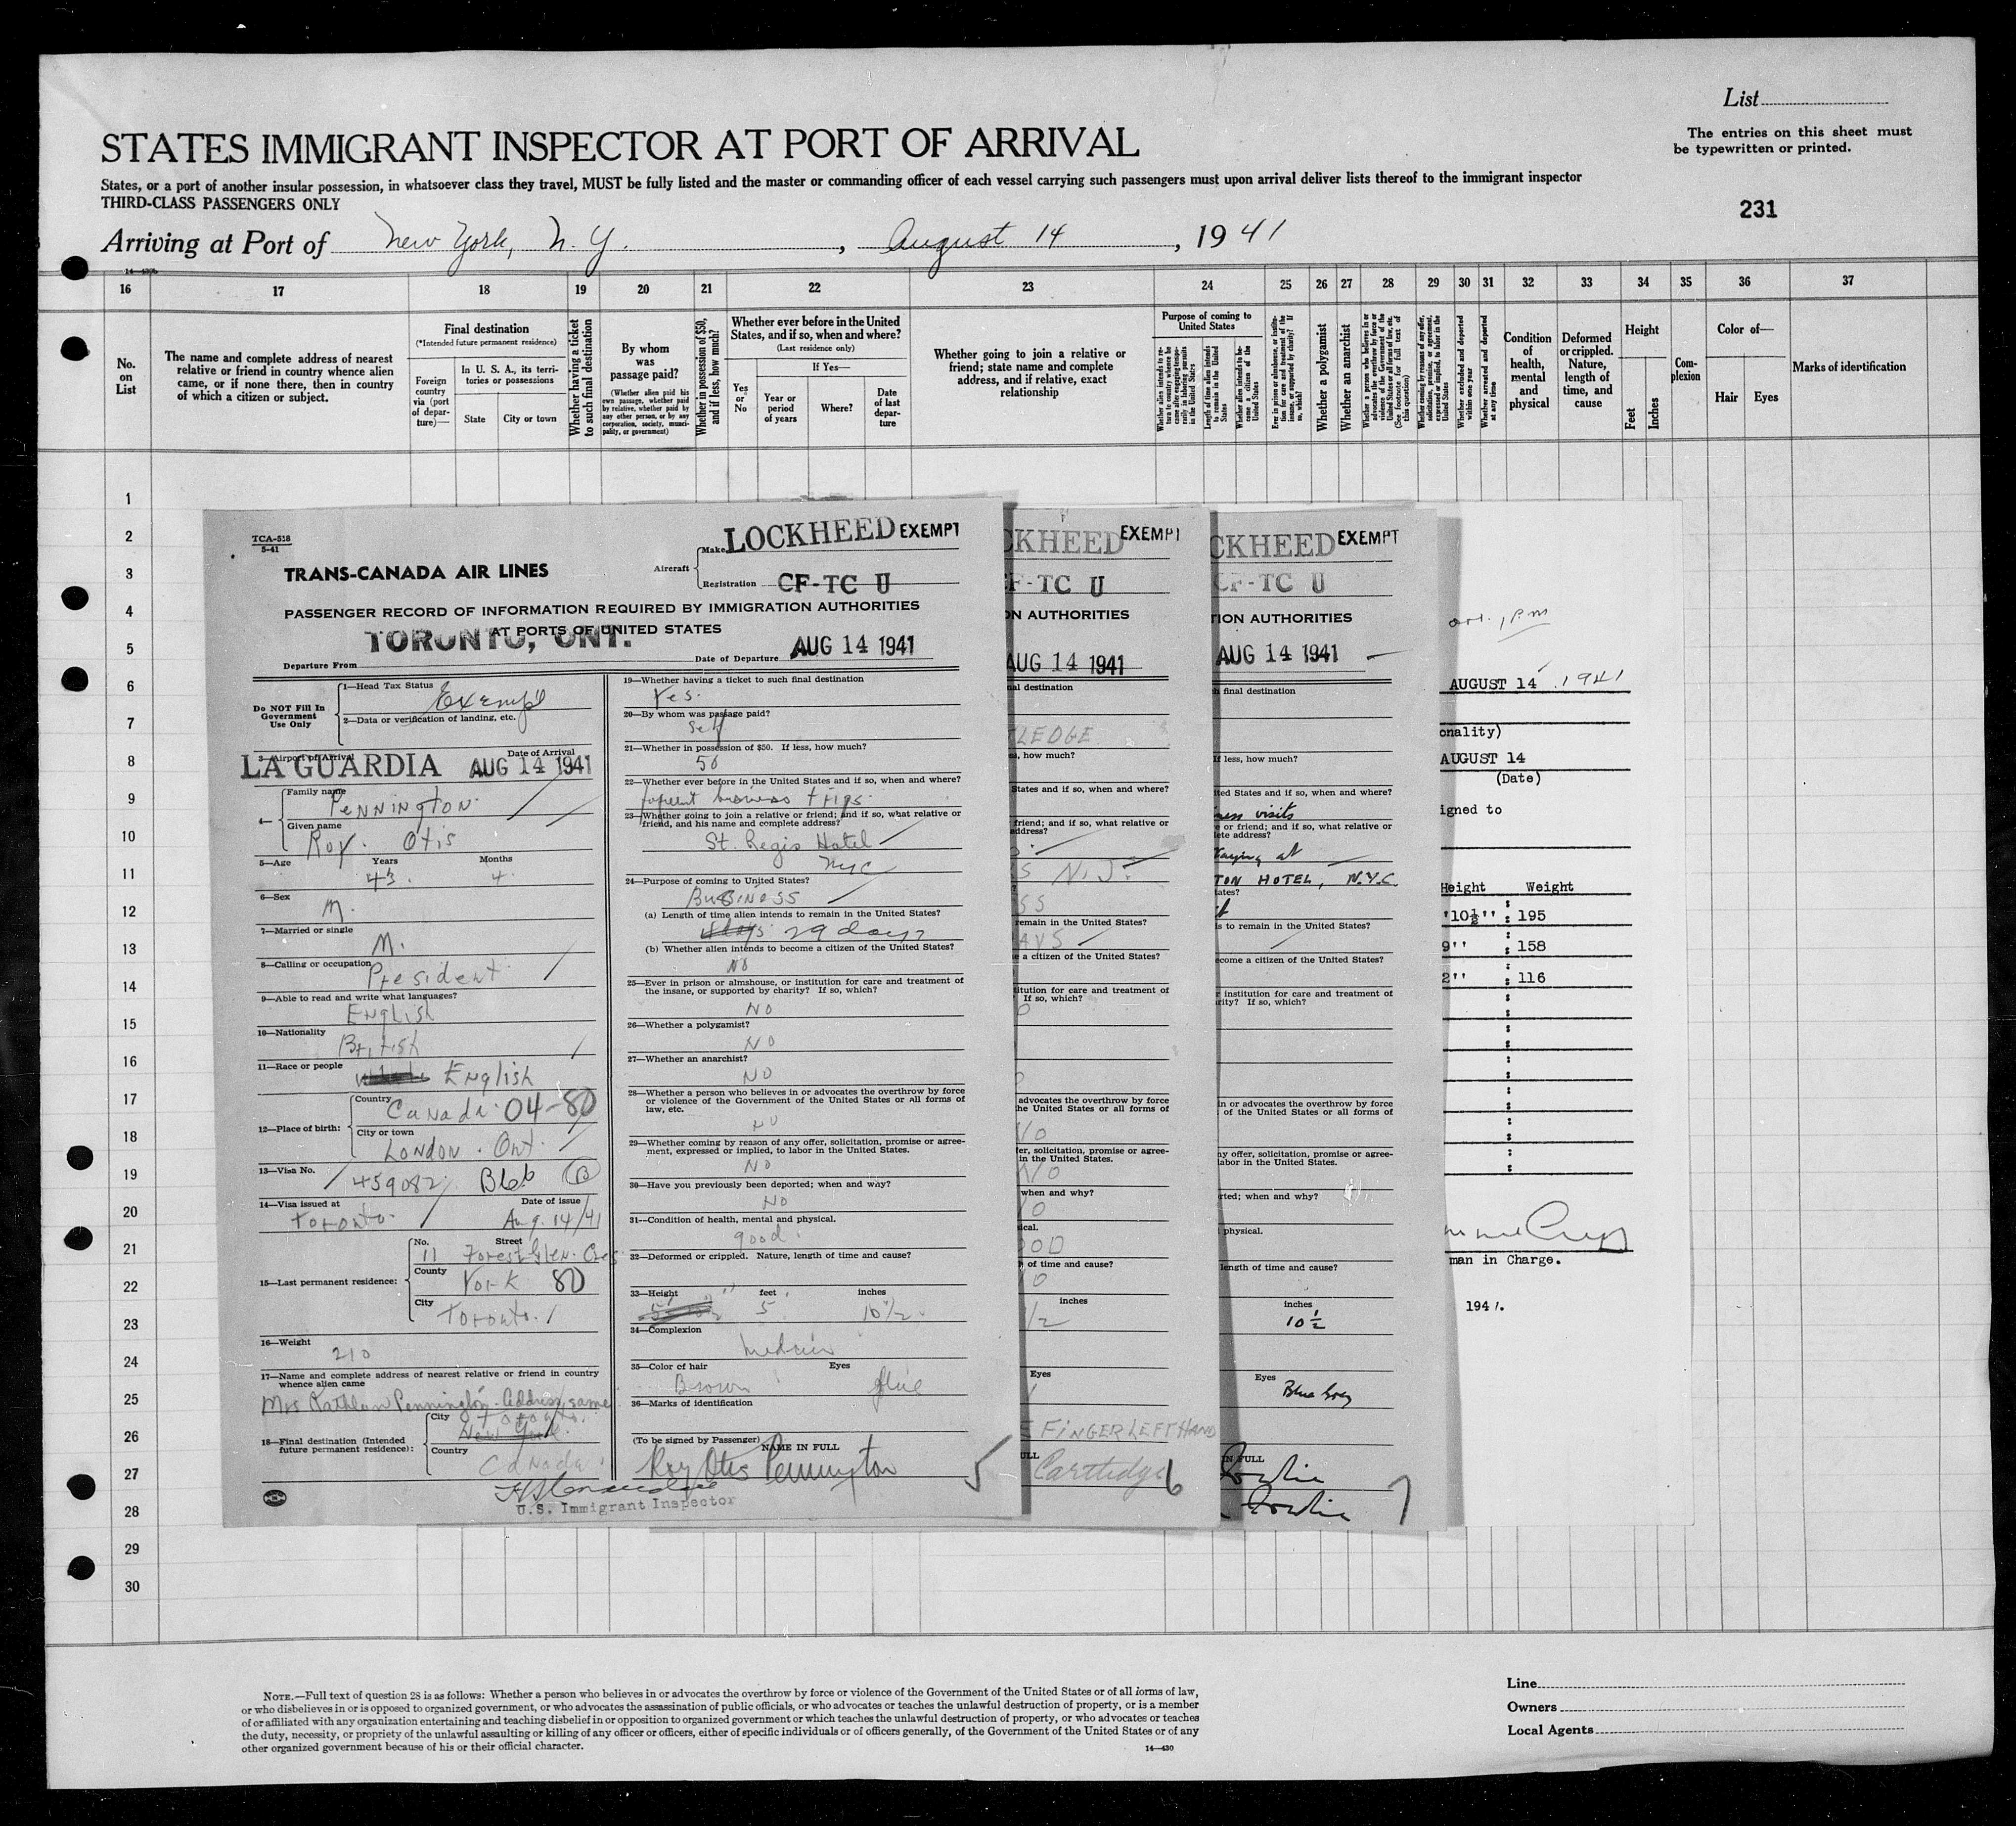 List
STATES IMMIGRANT INSPECTOR AT PORT OF ARRIVAL
The entries on this sheet must
be typewritten or printed.
States, or a port of another insular possession, in whatsoever class they travel, MUST be fully listed and the master or commanding officer of each vessel carrying such passengers must upon arrival deliver lists thereof to the immigrant inspector
THIRD-CLASS PASSENGERS ONLY
231
Arriving at Port of New York, N. Y., August 14, 1941
16 17 18 19 20 21 22 23 24 25 26 27 28 29 30 31 32 33 34 35 36 37
No. on List
The name and complete address of nearest relative or friend in country whence alien came, or if none there, then in country of which a citizen or subject.
Final destination
(*Intended future permanent residence)
Foreign country via (port of departure)—
In U. S. A., its territories or possessions
State
City or town
Whether having a ticket to such final destination
By whom was passage paid?
(Whether alien paid his own passage, whether paid by relative, whether paid by any other person, or by any corporation, society, municipality, or government)
Whether in possession of $50, and if less, how much?
Whether ever before in the United States, and if so, when and where?
(Last residence only)
Yes or No
If Yes—
Year or period of years
Where?
Date of last departure
Whether going to join a relative or friend; state name and complete address, and if relative, exact relationship
Purpose of coming to United States
Whether a polygamist
Whether an anarchist
Whether excluded and deported within one year
Whether arrested and deported at any time
Condition of health, mental and physical
Deformed or crippled. Nature, length of time, and cause
Height
Feet
Inches
Complexion
Color of—
Hair
Eyes
Marks of identification
1
2
3
4
5
6
7
8
9
10
11
12
13
14
15
16
17
18
19
20
21
22
23
24
25
26
27
28
29
30
TCA-518
5-41
TRANS-CANADA AIR LINES
Aircraft
Make LOCKHEED EXEMPT
Registration CF-TC U
PASSENGER RECORD OF INFORMATION REQUIRED BY IMMIGRATION AUTHORITIES
AT PORTS OF UNITED STATES
Departure From TORONTO, ONT.
Date of Departure AUG 14 1941
Do NOT Fill In Government Use Only
1—Head Tax Status Exempt
2—Data or verification of landing, etc.
3—Airport of Arrival LA GUARDIA
Date of Arrival AUG 14 1941
4—
Family name Pennington
Given name Roy Otis
5—Age Years 43 Months 4
6—Sex M.
7—Married or single M.
8—Calling or occupation President
9—Able to read and write what languages? English
10—Nationality British
11—Race or people English
12—Place of birth:
Country Canada 04-80
City or town London Ont.
13—Visa No. 459082 B6b B
14—Visa issued at Toronto
Date of issue Aug. 14/41
15—Last permanent residence:
No. 11 Street Forest Glen Cres
County York 80
City Toronto
16—Weight 210
17—Name and complete address of nearest relative or friend in country whence alien came
Mrs Kathleen Pennington Address same
18—Final destination (Intended future permanent residence):
City Toronto
New York
Country Canada
19—Whether having a ticket to such final destination
Yes.
20—By whom was passage paid?
Self
21—Whether in possession of $50. If less, how much?
50
22—Whether ever before in the United States and if so, when and where?
business trips
23—Whether going to join a relative or friend; and if so, what relative or friend, and his name and complete address?
St. Regis Hotel
NYC
24—Purpose of coming to United States?
Business
(a) Length of time alien intends to remain in the United States?
29 days
(b) Whether alien intends to become a citizen of the United States?
No
25—Ever in prison or almshouse, or institution for care and treatment of the insane, or supported by charity? If so, which?
No
26—Whether a polygamist?
No
27—Whether an anarchist?
No
28—Whether a person who believes in or advocates the overthrow by force or violence of the Government of the United States or all forms of law, etc.
No
29—Whether coming by reason of any offer, solicitation, promise or agreement, expressed or implied, to labor in the United States.
No
30—Have you previously been deported; when and why?
No
31—Condition of health, mental and physical.
good
32—Deformed or crippled. Nature, length of time and cause?
33—Height feet 5 inches 10½
34—Complexion
Medium
35—Color of hair Brown Eyes Blue
36—Marks of identification
(To be signed by Passenger) NAME IN FULL
Roy Otis Pennington
5
U.S. Immigrant Inspector
CKHEED EXEMPT
F-TC U
ON AUTHORITIES
AUG 14 1941
nal destination
TLEDGE
s, how much?
States and if so, when and where?
friend; and if so, what relative or
address?
N.J.
SS
remain in the United States?
AYS
e a citizen of the United States?
titution for care and treatment of
If so, which?
advocates the overthrow by force
he United States or all forms of
No
fer, solicitation, promise or agree-
in the United States.
No
when and why?
ical.
OOD
of time and cause?
inches
1/2
Eyes
E FINGER LEFT HAND
ULL
Cartledge
6
CKHEED EXEMPT
CF-TC U
TION AUTHORITIES
AUG 14 1941
final destination
f less, how much?
ited States and if so, when and where?
ness visits
e or friend; and if so, what relative or
ete address?
staying at
TON HOTEL, N.Y.C.
tates?
s to remain in the United States?
ecome a citizen of the United States?
r institution for care and treatment of
rity? If so, which?
in or advocates the overthrow by force
of the United States or all forms of
ny offer, solicitation, promise or agree-
labor in the United States.
rted; when and why?
physical.
length of time and cause?
inches
10½
Eyes
Blue Grey
IN FULL
7
arr. 1 pm
AUGUST 14 1941
onality)
AUGUST 14
(Date)
igned to
Height Weight
'10½'' : 195
9'' : 158
2'' : 116
man in Charge.
1941.
NOTE.—Full text of question 28 is as follows: Whether a person who believes in or advocates the overthrow by force or violence of the Government of the United States or of all forms of law,
or who disbelieves in or is opposed to organized government, or who advocates the assassination of public officials, or who advocates or teaches the unlawful destruction of property, or is a member
of or affiliated with any organization entertaining and teaching disbelief in or opposition to organized government or which teaches the unlawful destruction of property, or who advocates or teaches
the duty, necessity, or propriety of the unlawful assaulting or killing of any officer or officers, either of specific individuals or of officers generally, of the Government of the United States or of any
other organized government because of his or their official character.
14—430
Line
Owners
Local Agents